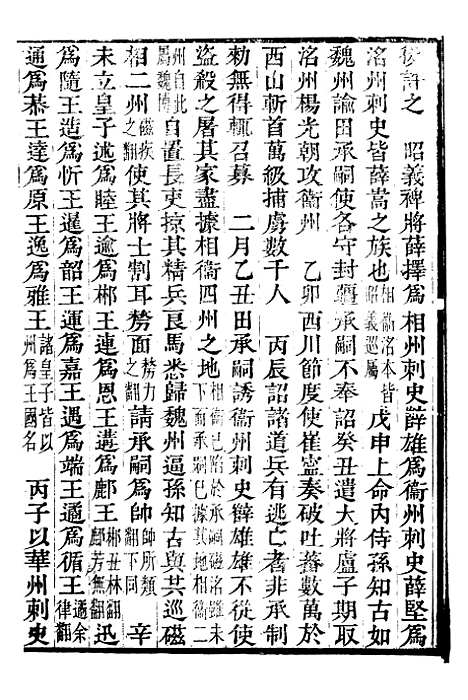 從許之　昭義裨將薛擇爲相州刺史薛雄爲衞州刺史薛堅爲
洺州刺史皆薛嵩之族也相衞洺本皆昭義巡屬戊申上命内侍孫知古如
魏州諭田承嗣使各守封疆承嗣不奉詔癸丑遣大將盧子期取
洺州楊光朝攻衞州　乙卯西川節度使崔寧奏破吐蕃數萬於
西山斬首萬級捕虜數千人　丙辰詔諸道兵有逃亡者非承制
勑無得輒召募　二月乙丑田承嗣誘衞州刺史薛雄雄不從使
盜殺之屠其家盡據相衞四州之地相衞已陷於承嗣磁洺未下言承嗣已據其地相衞二
州自此屬魏博自置長吏掠其精兵良馬悉歸魏州逼孫知古與共巡磁
相二州磁疾之翻使其將士割耳剺面剺力之翻請承嗣爲帥帥所類翻下同　辛
未立皇子述爲睦王逾爲郴王連爲恩王遘爲鄜王郴丑林翻鄜芳無翻迅
爲隨王造爲忻王暹爲韶王運爲嘉王遇爲端王遹爲循王遹余律翻
通爲恭王逵爲原王逸爲雅王諸皇子皆以州爲王國名　丙子以華州刺史